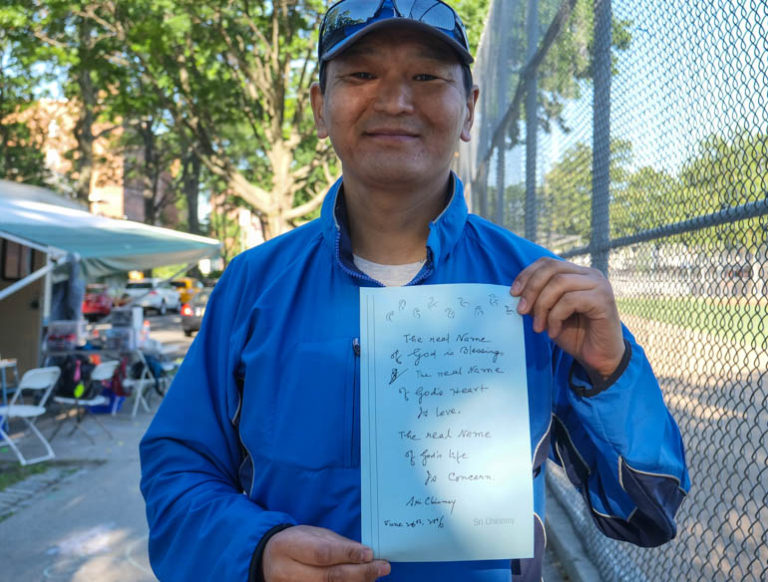 The real Name
of God is Blessing.
The real Name
of God's Heart
Is Love.
The real Name
of God's Life
Is Concern.
Sri Chinmoy
June 26th,
Sri Chinmoy